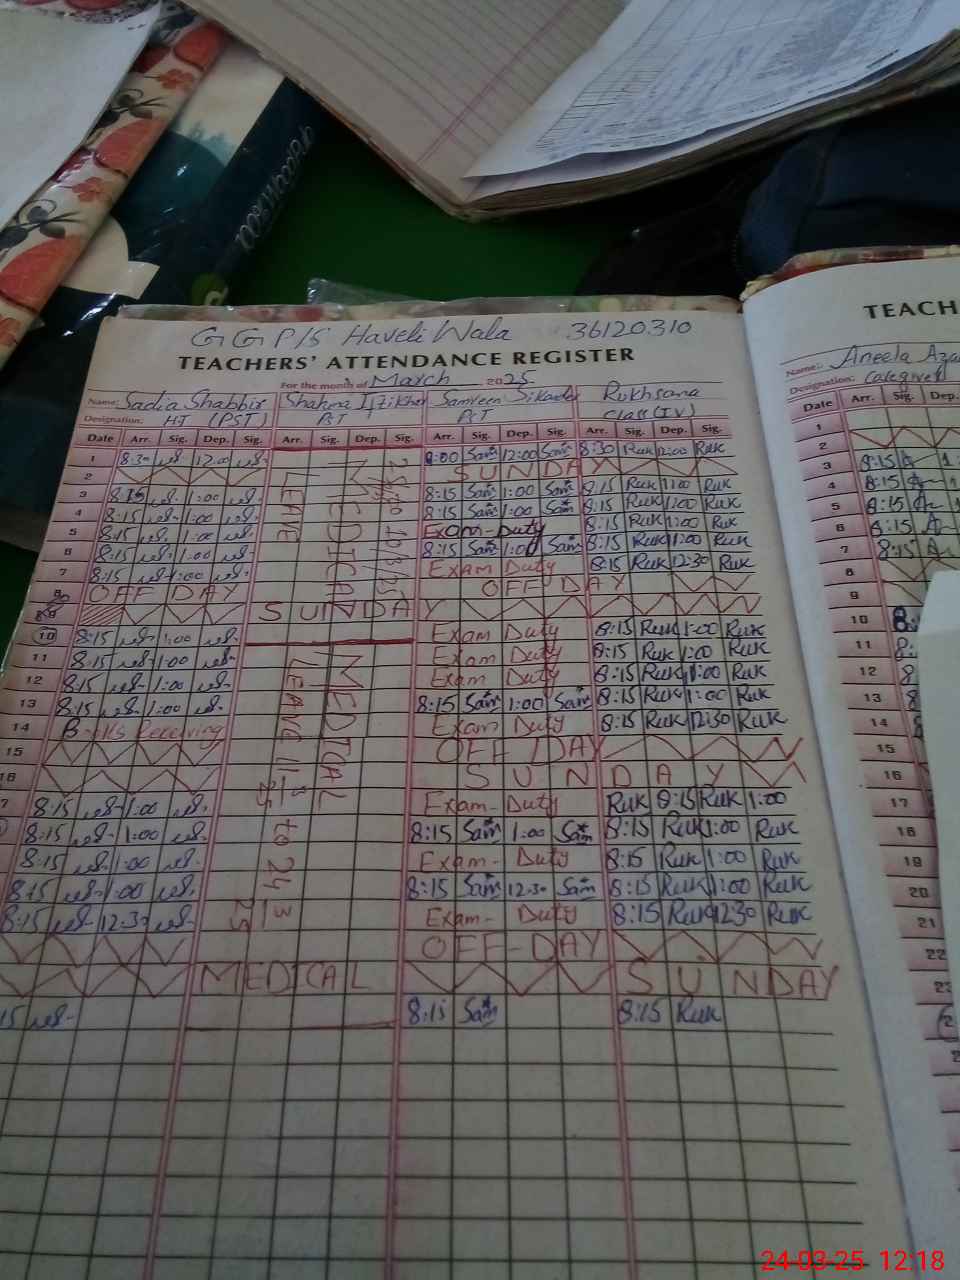 G G P/S Haveli Wala 36120310
TEACHERS' ATTENDANCE REGISTER
For the month of March 2025
Name: Sadia Shabbir Shahma Iftikhar Samreen Sikander Rukhsana
Designation: HT (PST) PST PST Class (IV)
Date Arr. Sig. Dep. Sig. Arr. Sig. Dep. Sig. Arr. Sig. Dep. Sig. Arr. Sig. Dep. Sig.
1 8:30 12:00 8:00 Sam 12:00 Sam 8:30 Ruk 12:00 Ruk
2 SUNDAY
3 8:15 1:00 8:15 Sam 1:00 Sam 8:15 Ruk 1:00 Ruk
4 8:15 1:00 8:15 Sam 1:00 Sam 8:15 Ruk 1:00 Ruk
5 8:15 1:00 Exam-Duty 8:15 Ruk 1:00 Ruk
6 8:15 1:00 8:15 Sam 1:00 Sam 8:15 Ruk 1:00 Ruk
7 8:15 1:00 Exam Duty 8:15 Ruk 12:30 Ruk
8 OFF DAY OFF DAY
9 SUNDAY
MEDICAL
LEAVE
10 8:15 1:00 Exam Duty 8:15 Ruk 1:00 Ruk
11 8:15 1:00 Exam Duty 8:15 Ruk 1:00 Ruk
12 8:15 1:00 Exam Duty 8:15 Ruk 1:00 Ruk
13 8:15 1:00 8:15 Sam 1:00 Sam 8:15 Ruk 1:00 Ruk
14 Receiving Exam Duty 8:15 Ruk 12:30 Ruk
15 OFF DAY
16 SUNDAY
MEDICAL
LEAVE 11-3-25 to 24-3-25
7 8:15 1:00 Exam-Duty Ruk 8:15 Ruk 1:00
8:15 1:00 8:15 Sam 1:00 Sam 8:15 Ruk 1:00 Ruk
8:15 1:00 Exam-Duty 8:15 Ruk 1:00 Ruk
8:15 1:00 8:15 Sam 12:30 Sam 8:15 Ruk 1:00 Ruk
8:15 12:30 Exam-Duty 8:15 Ruk 12:30 Ruk
OFF-DAY
MEDICAL SUNDAY
15 8:15 Sam 8:15 Ruk
TEACH
Name: Aneela Aza
Designation: Caregiver
Date Arr. Sig. Dep.
1
2
3 8:15
4 8:15
5 8:15
6 8:15
7 8:15
8
9
10 8:
11
12 8
13
14
15
16
17
18
19
20
21
22
23
24-03-25 12:18